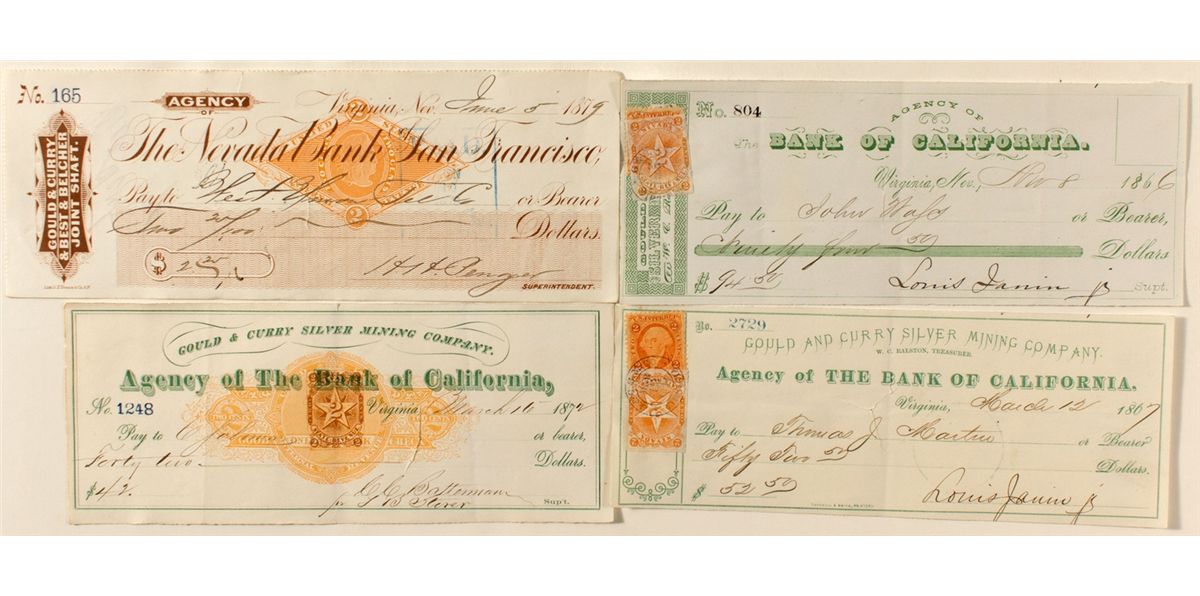 No. 165
AGENCY
OF
Virginia, Nev. June 5 1879
The Nevada Bank of San Francisco,
Pay to or Bearer
Two 25/100 Dollars.
$ 2 25/100
SUPERINTENDENT.
GOULD & CURRY
& BEST & BELCHER
JOINT SHAFT.
No. 804
AGENCY OF
The BANK OF CALIFORNIA.
Virginia, Nev., Nov 8 1866
Pay to John or Bearer,
Ninety four 50 Dollars
$ 94 50 Louis Janin jr Supt.
SILVER
GOULD & CURRY SILVER MINING COMPANY.
Agency of The Bank of California,
No. 1248 Virginia March 16 1872
Pay to or bearer,
Forty two Dollars.
$42. C C Batterman
for Supt.
No. 2729
GOULD AND CURRY SILVER MINING COMPANY.
W. C. RALSTON, TREASURER.
Agency of THE BANK OF CALIFORNIA.
Virginia, March 12 1867
Pay to Thomas J Martin or Bearer
Fifty Two 50 Dollars.
$ 52 50 Louis Janin jr